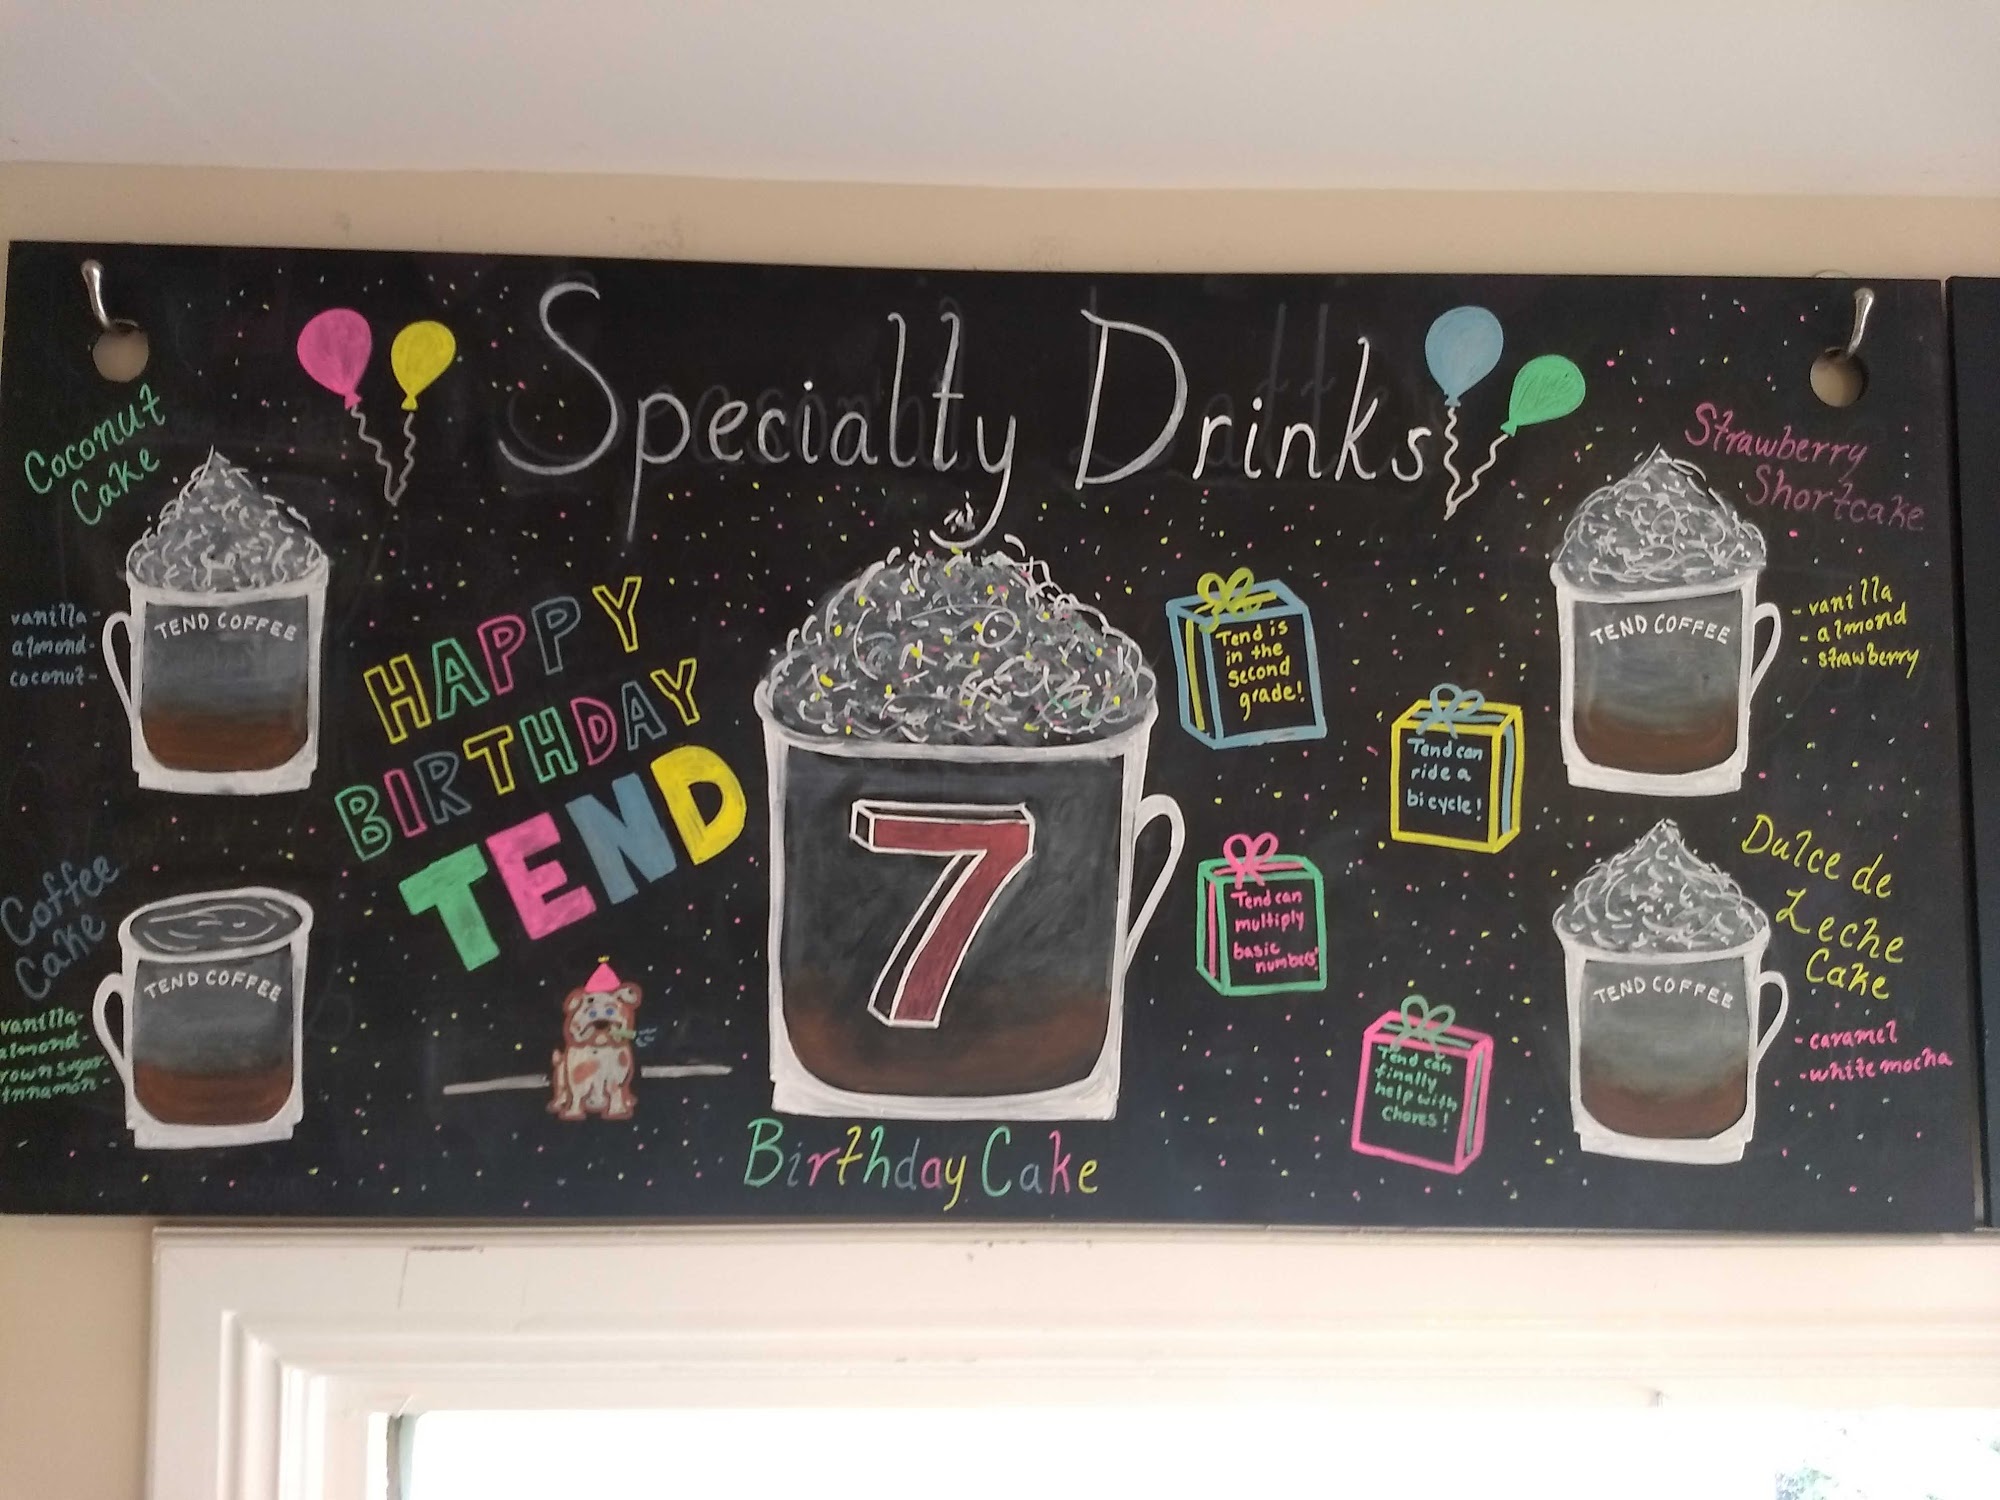 Specialty Drinks
Coconut
Cake
vanilla-
almond-
coconut-
TEND COFFEE
Coffee
Cake
vanilla-
almond-
rown sugar-
innamon-
TEND COFFEE
HAPPY
BIRTHDAY
TEND
7
Birthday Cake
Tend is
in the
second
grade!
Tend can
ride a
bicycle!
Tend can
multiply
basic
numbers!
Tend can
finally
help with
chores!
Strawberry
Shortcake
-vanilla
-almond
-strawberry
TEND COFFEE
Dulce de
Leche
Cake
-caramel
-white mocha
TEND COFFEE